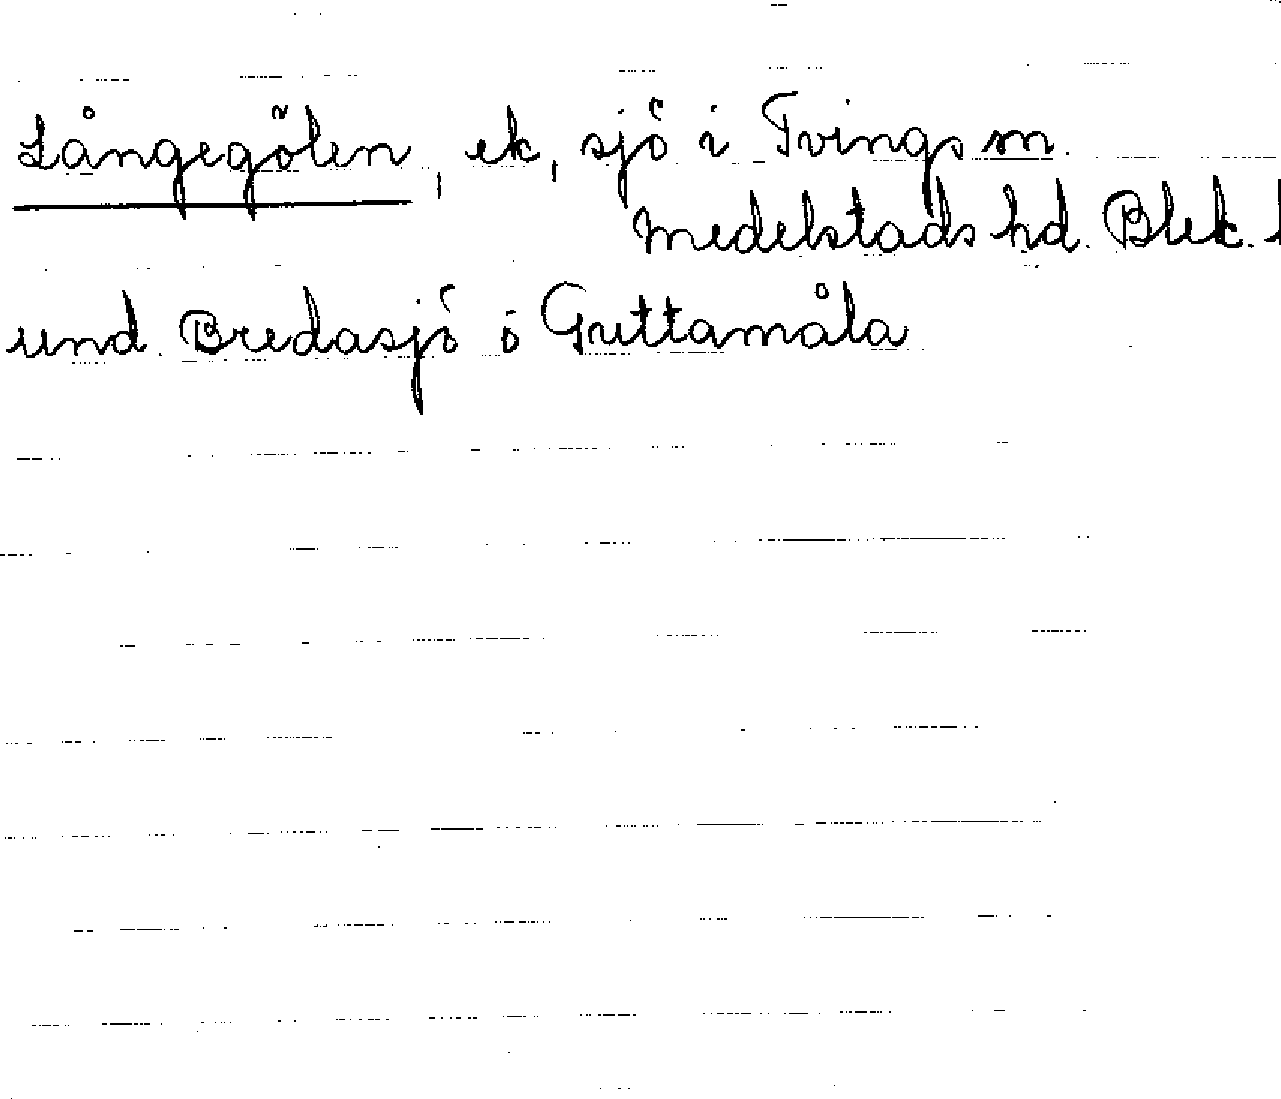 Långegölen, ek, sjö i Tvings sn.
Medelstads hd. Blek. l
und. Bredasjö ö Guttamåla